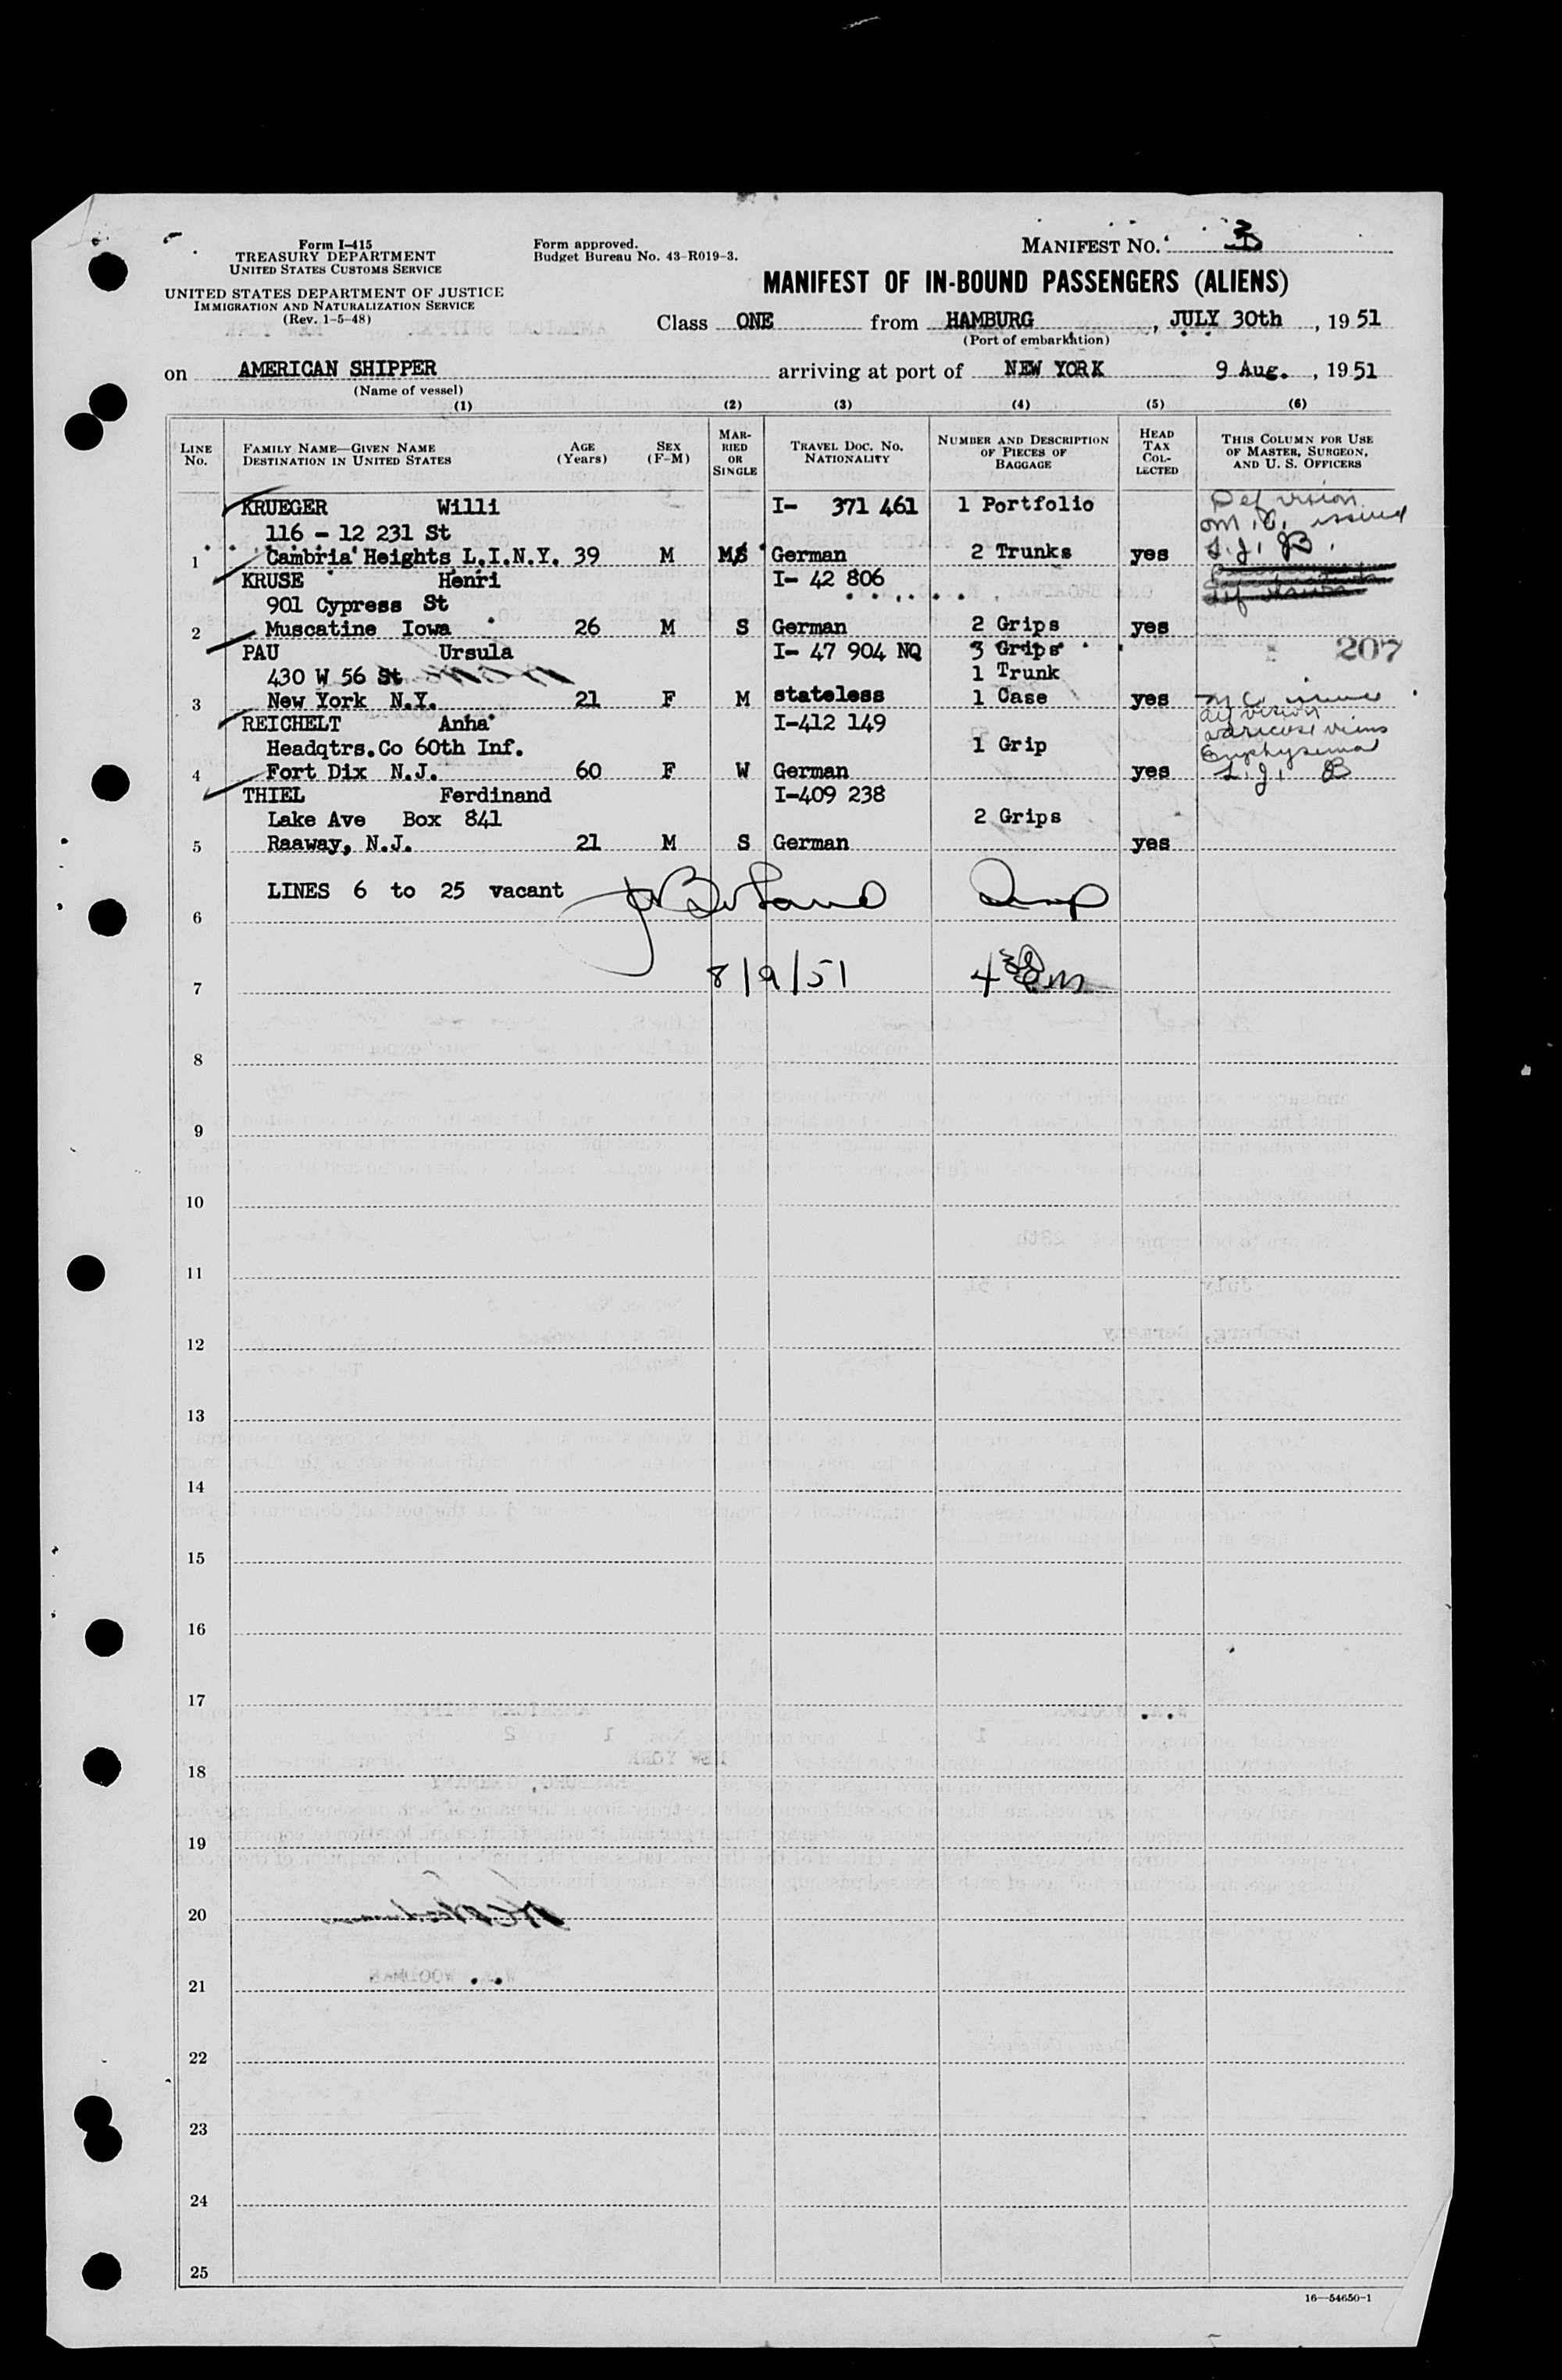 Form I-415
TREASURY DEPARTMENT
UNITED STATES CUSTOMS SERVICE
UNITED STATES DEPARTMENT OF JUSTICE
IMMIGRATION AND NATURALIZATION SERVICE
(Rev. 1-5-48)
Form approved.
Budget Bureau No. 43-R019-3.
MANIFEST NO. 3
MANIFEST OF IN-BOUND PASSENGERS (ALIENS)
Class ONE from HAMBURG, JULY 30th, 1951
(Port of embarkation)
on AMERICAN SHIPPER arriving at port of NEW YORK 9 Aug., 1951
(Name of vessel)
(1) (2) (3) (4) (5) (6)
LINE No.
FAMILY NAME—GIVEN NAME
DESTINATION IN UNITED STATES
AGE (Years)
SEX (F-M)
MARRIED OR SINGLE
TRAVEL DOC. NO.
NATIONALITY
NUMBER AND DESCRIPTION OF PIECES OF BAGGAGE
HEAD TAX COLLECTED
THIS COLUMN FOR USE OF MASTER, SURGEON, AND U. S. OFFICERS
KRUEGER Willi I- 371 461 1 Portfolio Def vision
116 - 12 231 St issued
1 Cambria Heights L.I.N.Y. 39 M MS German 2 Trunks yes L.I. JB.
KRUSE Henri I- 42 806
901 Cypress St
2 Muscatine Iowa 26 M S German 2 Grips yes
PAU Ursula I- 47 904 NQ 3 Grips 207
430 W 56 St 1 Trunk
3 New York N.Y. 21 F M stateless 1 Case yes
REICHELT Anna I-412 149 vision
Headqtrs.Co 60th Inf. 1 Grip varicose veins
Emphysema
4 Fort Dix N.J. 60 F W German yes L.I. JB
THIEL Ferdinand I-409 238
Lake Ave Box 841 2 Grips
5 Raaway, N.J. 21 M S German yes
LINES 6 to 25 vacant
6
8/9/51
7
8
9
10
11
12
13
14
15
16
17
18
19
20
21
22
23
24
25
16—54650-1